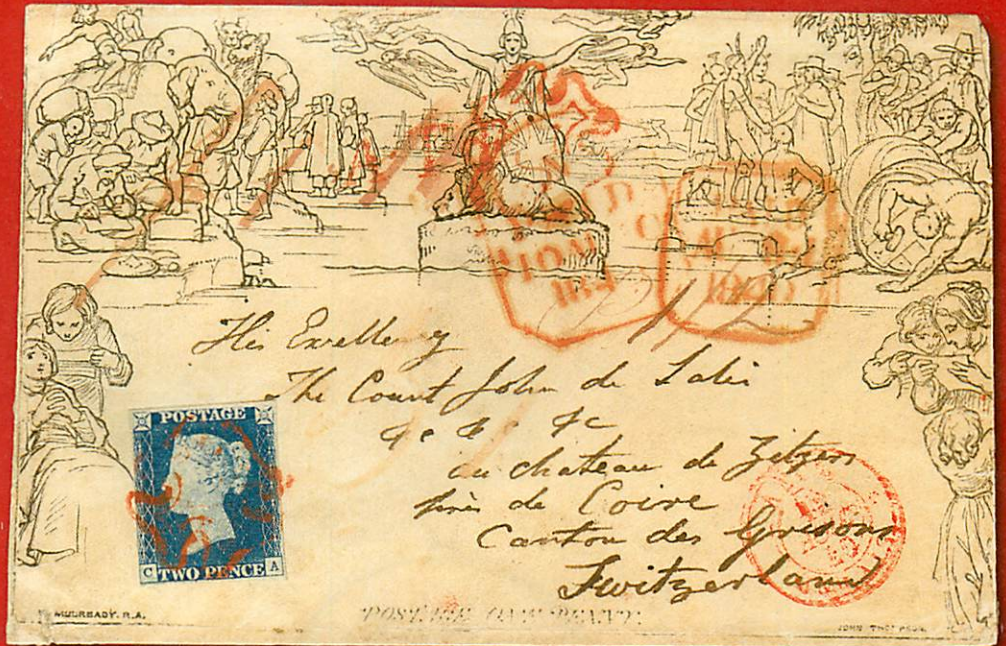 His Excellency
The Count John de Salis
&c &c &c
au chateau de Zitzers
près de Coire
Canton des Grisons
Switzerland
POSTAGE
C TWO PENCE A
MULREADY. R.A.
POSTAGE ONE PENNY.
JOHN THOMPSON